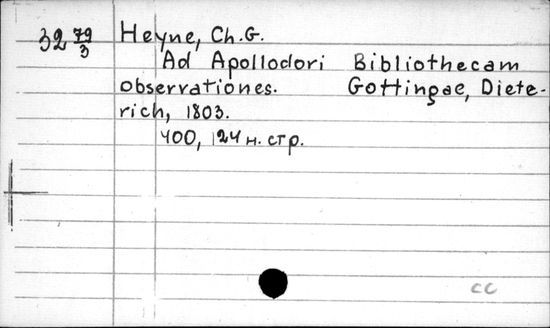 32 79/3 Heyne, Ch.G.
Ad Apollodori Bibliothecam
observationes. Gottingae, Diete-
rich, 1803.
400, 124 н. стр.
cc